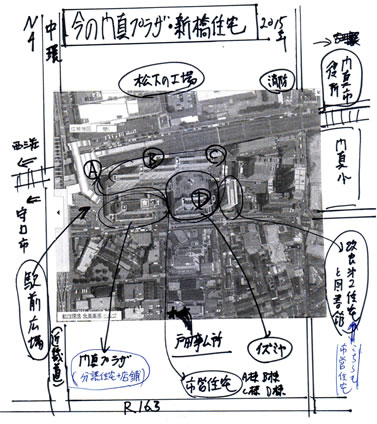 今の門真プラザ・新橋住宅
2015年
中環
松下の工場
消防
門真市役所
門真小
西三荘
守口市
A
B
C
D
駅前広場
門真プラザ
(分譲住宅+店舗)
戸田事ム所
市営住宅
A棟 B棟
C棟 D棟
イズミヤ
改良第2住宅
と図書館
こちらも
市営住宅
R163